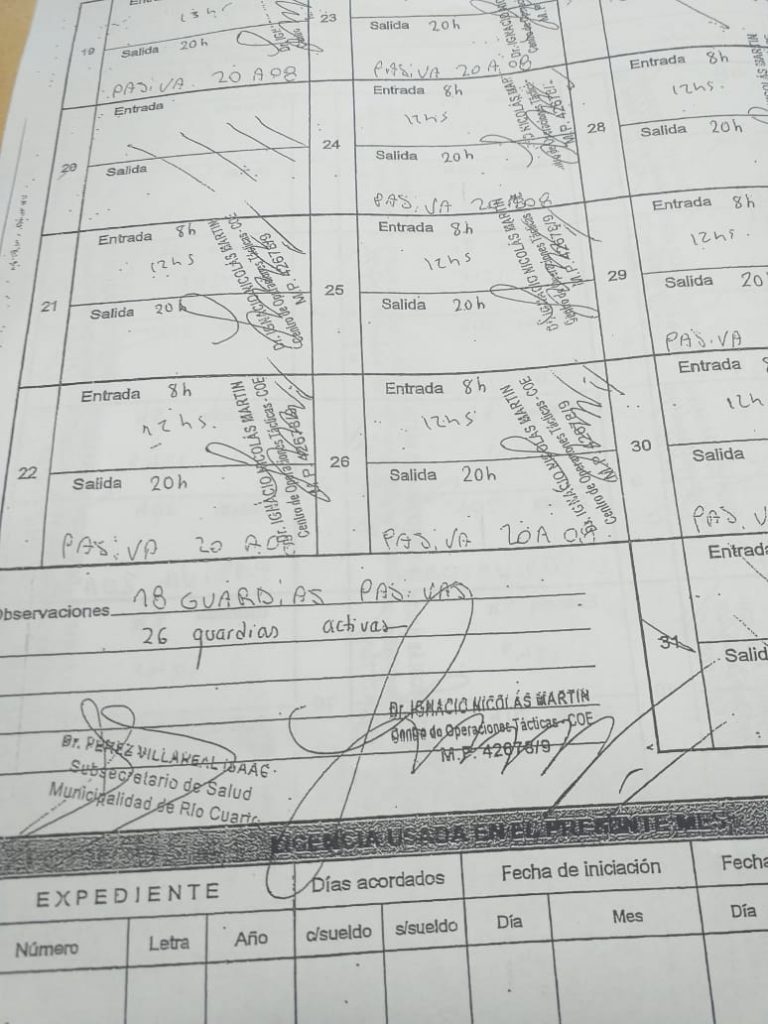 Entrada
13hs
19
Salida 20h
PASiVA 20 A 08
23
Salida 20h
PASiVA 20 A 08
Entrada
20
Salida
Entrada 8h
12hs
24
Salida 20h
PASiVA 20 A 08
Entrada 8h
12hs.
28
Salida 20h
Entrada 8h
12hs
21
Salida 20h
Dr. IGNACIO NICOLÁS MARTIN
Centro de Operaciones Tácticas - COE
Entrada 8h
12hs
25
Salida 20h
Entrada 8h
12hs.
29
Salida 20
PASiVA
Entrada 8h
12hs.
22
Salida 20h
PASiVA 20 A
Dr. IGNACIO NICOLÁS MARTIN
Centro de Operaciones Tácticas - COE
Entrada 8h
12hs
26
Salida 20h
PASiVA 20A
Dr. IGNACIO NICOLÁS MARTIN
Centro de Operaciones Tácticas - COE
Entrada
12h
30
Salida
Observaciones 18 GUARDiAS PASiVAS
26 guardias activas
Entrada
31
Salid
Dr. PEREZ VILLAREAL ISAAC.
Subsecretario de Salud
Municipalidad de Río Cuarto
Dr. IGNACIO NICOLÁS MARTIN
Centro de Operaciones Tácticas - COE
M.P. 42678/9
LICENCIA USADA EN EL PRESENTE MES
EXPEDIENTE Días acordados Fecha de iniciación Fecha
Número Letra Año c/sueldo s/sueldo Día Mes Día